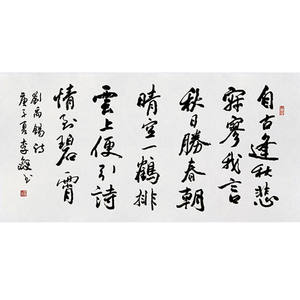 自古逢秋悲
寂寥我言
秋日勝春朝
晴空一鶴排
雲上便引詩
情到碧霄
劉禹錫詩
庚子夏李书